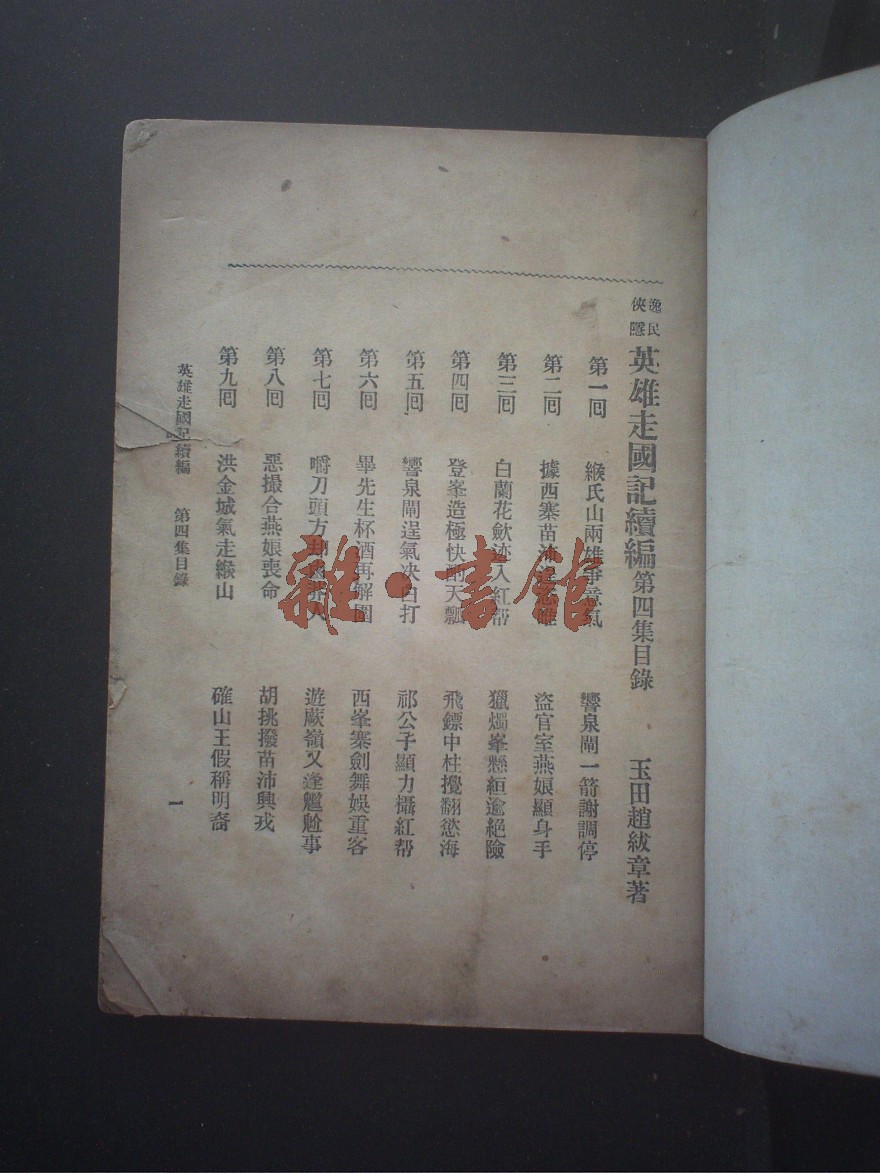 逸民
俠隱
英雄走國記續編第四集目錄 玉田趙紱章著
第一回 緱氏山兩雄爭意氣 響泉閘一箭謝調停
第二回 據西寨苗沛 盜官室燕娘顯身手
第三回 白蘭花歛迹入紅幇 獵燭峯懸絙逾絕險
第四回 登峯造極快酌天瓢 飛鏢中柱攪翻慾海
第五回 響泉閘逞氣决白打 祁公子顯力攝紅幇
第六回 畢先生杯酒再解圍 西峯寨劍舞娛重客
第七回 嚼刀頭方 遊蕨嶺又逢尷尬事
第八回 惡撮合燕娘喪命 胡挑撥苗沛興戎
第九回 洪金城氣走緱山 確山王假稱明裔
英雄走國記續編 第四集目錄 一
雜·書館